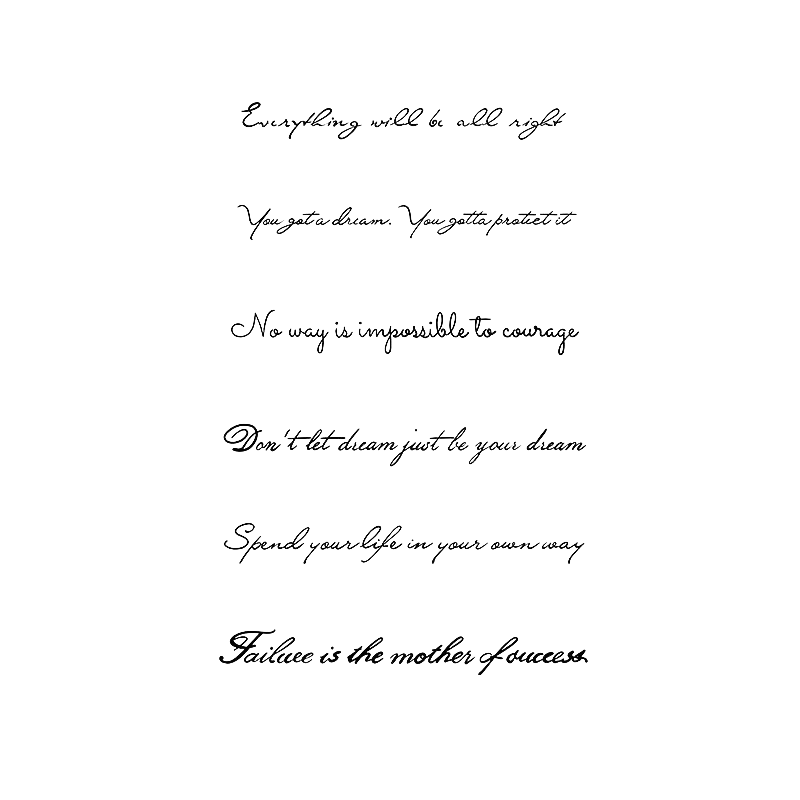 Everything will be all right
You got a dream. You gotta protect it
No way is impossible to courage
Don't let dream just be your dream
Spend your life in your own way
Failure is the mother of success